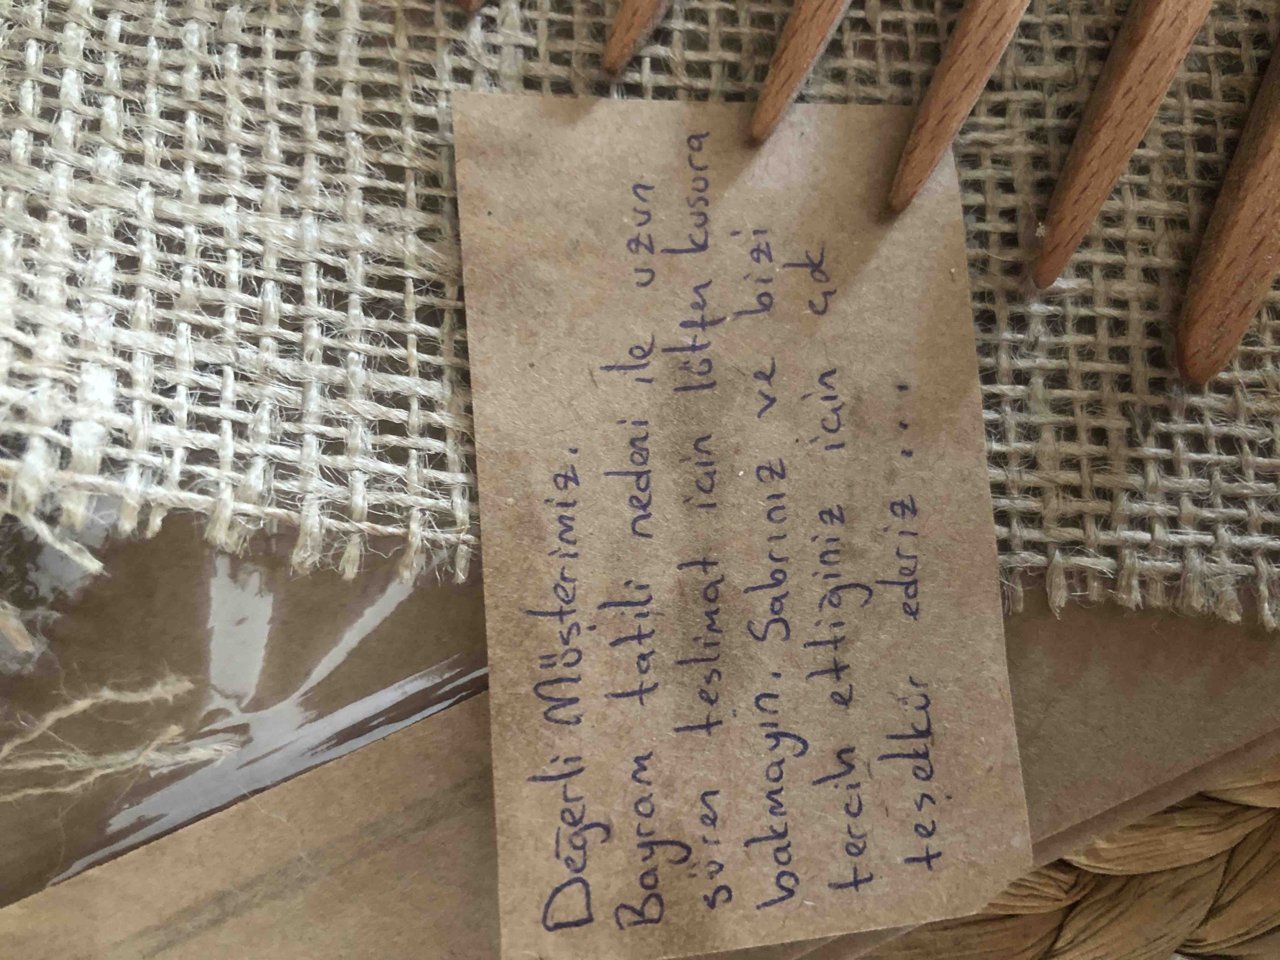 Değerli Müşterimiz.
Bayram tatili nedeni ile uzun
süren teslimat için lütfen kusura
bakmayın. Sabrınız ve bizi
tercih ettiğiniz için çok
teşekkür ederiz...